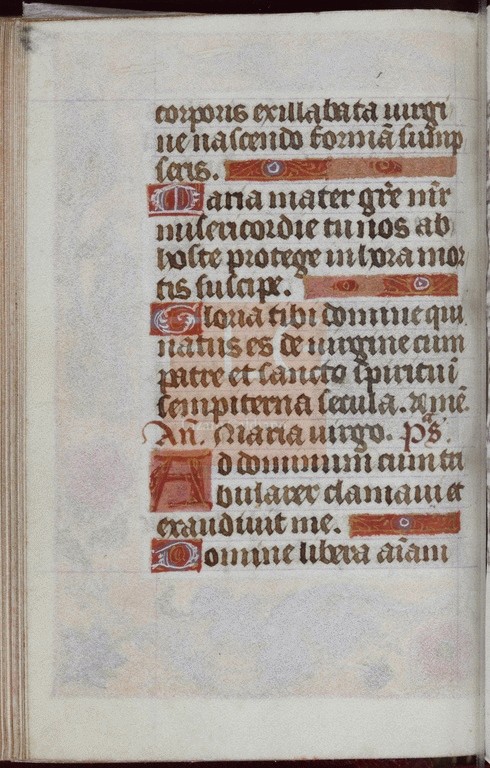 corporis exillabata uirgi
ne nascendo formā sump
seris.
Maria mater gr̄e m̄r
misericordie tu nos ab
hoste protege in hora mor
tis suscipe.
Gloria tibi domine qui
natus es de uirgine cum
patre et sancto spiritui
sempiterna secula. amē.
Añ. Maria uirgo. ps̄.
Ad dominum cum tri
bularer clamaui et
exaudiuit me.
Domine libera aīam